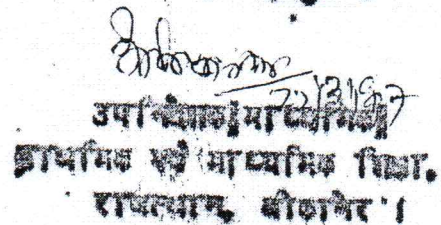 22/3/97
उपनिदेशक (माध्यमिक)
प्राथमिक एवं माध्यमिक शिक्षा,
राजस्थान, बीकानेर ।